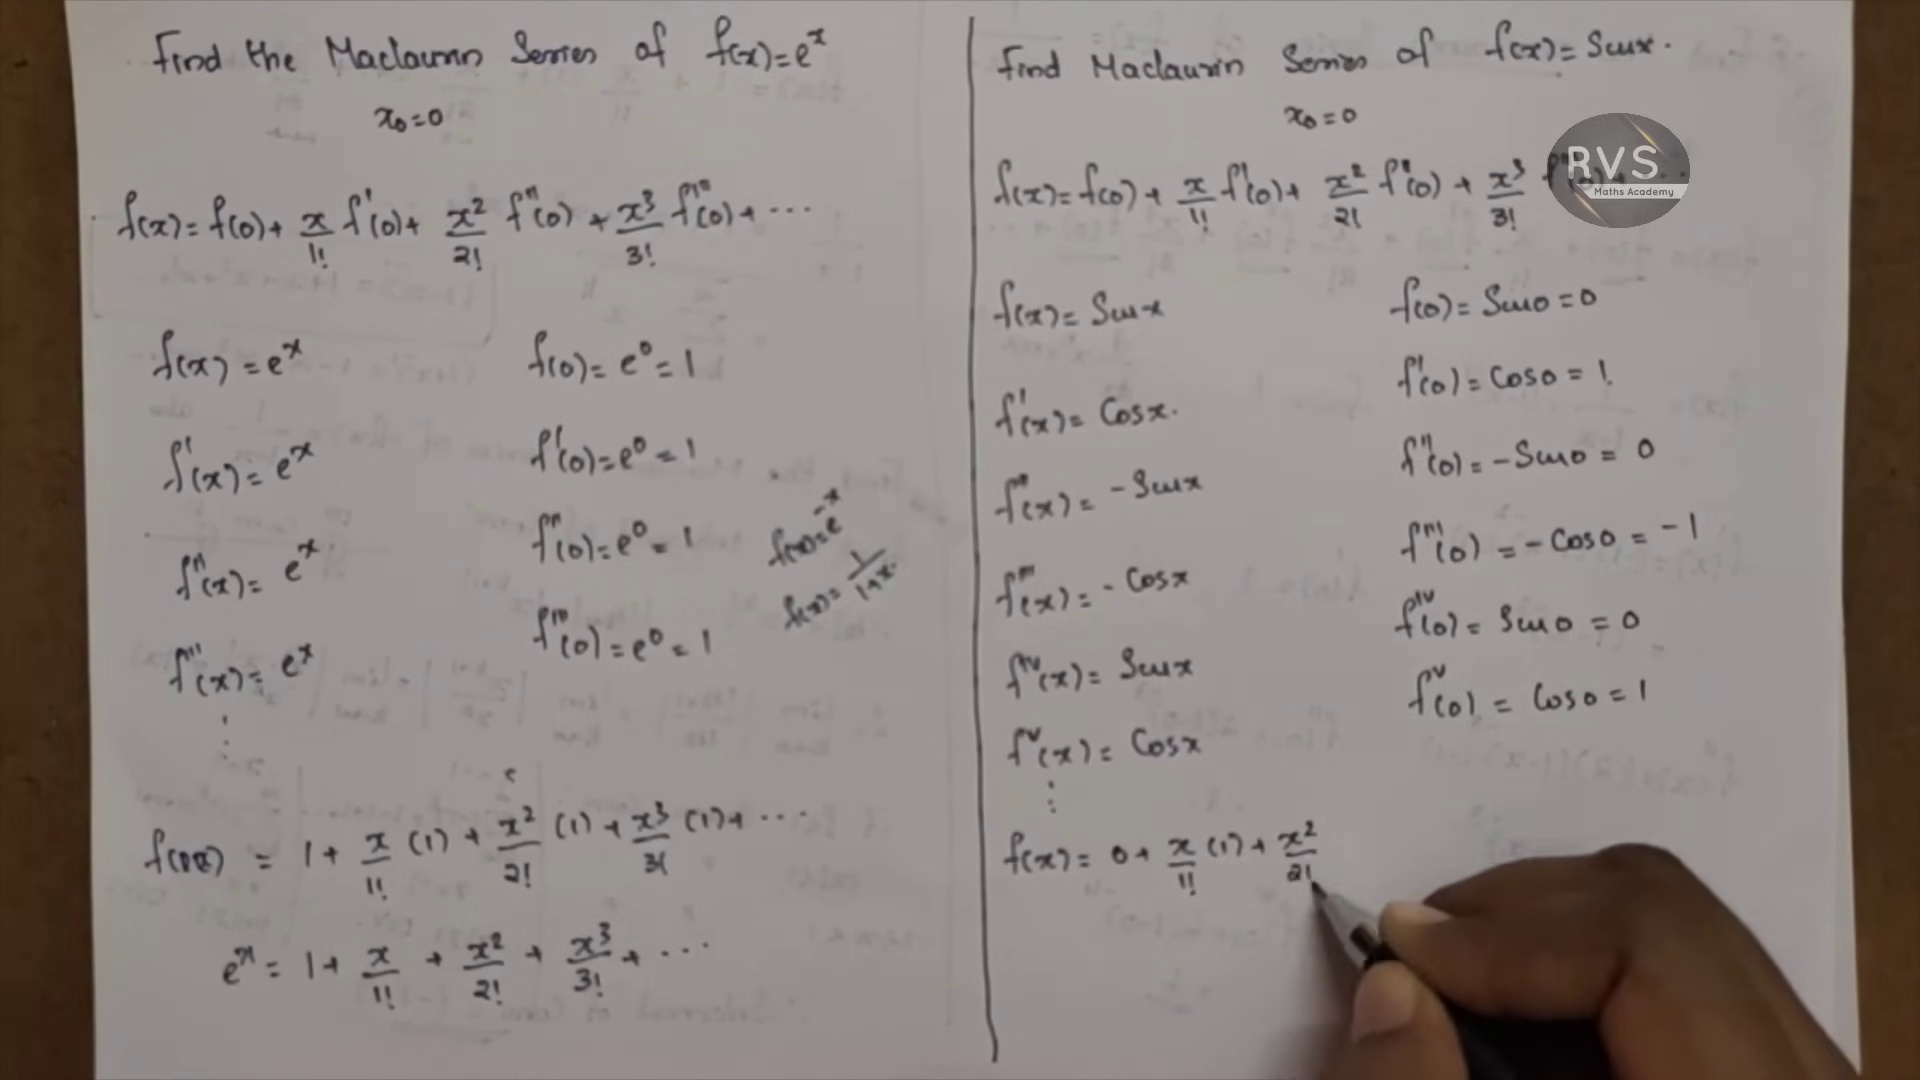 Find the Maclaurin Series of f(x)=e^x
x₀=0
f(x)= f(0)+ x/1! f'(0)+ x²/2! f''(0) + x³/3! f'''(0)+ ...
f(x) = e^x
f(0)= e⁰= 1
f'(x)= e^x
f'(0)=e⁰ = 1
f''(x)= e^x
f''(0)=e⁰ = 1
f'''(x)= e^x
f'''(0)=e⁰ = 1
⋮
f(x)=e^-x
f(x)= 1/1+x.
= 1+ x/1! (1)+ x²/2! (1)+ x³/3! (1)+ ...
e^x = 1+ x/1! + x²/2! + x³/3! + ...
Find Maclaurin Series of f(x)= Sinx.
x₀=0
RVS
Maths Academy
f(x)= f(0)+ x/1! f'(0)+ x²/2! f''(0) + x³/3!
f(x)= Sinx
f(0)= Sin0 = 0
f'(x)= Cosx.
f'(0) = Cos0 = 1.
f''(x) = - Sinx
f''(0) = - Sin0 = 0
f'''(x) = - Cosx
f'''(0) = - Cos0 = -1
f^IV(x)= Sinx
f^IV(0)= Sin0 = 0
f^V(x)= Cosx
f^V(0) = Cos0 = 1
⋮
f(x)= 0+ x/1! (1)+ x²/2!